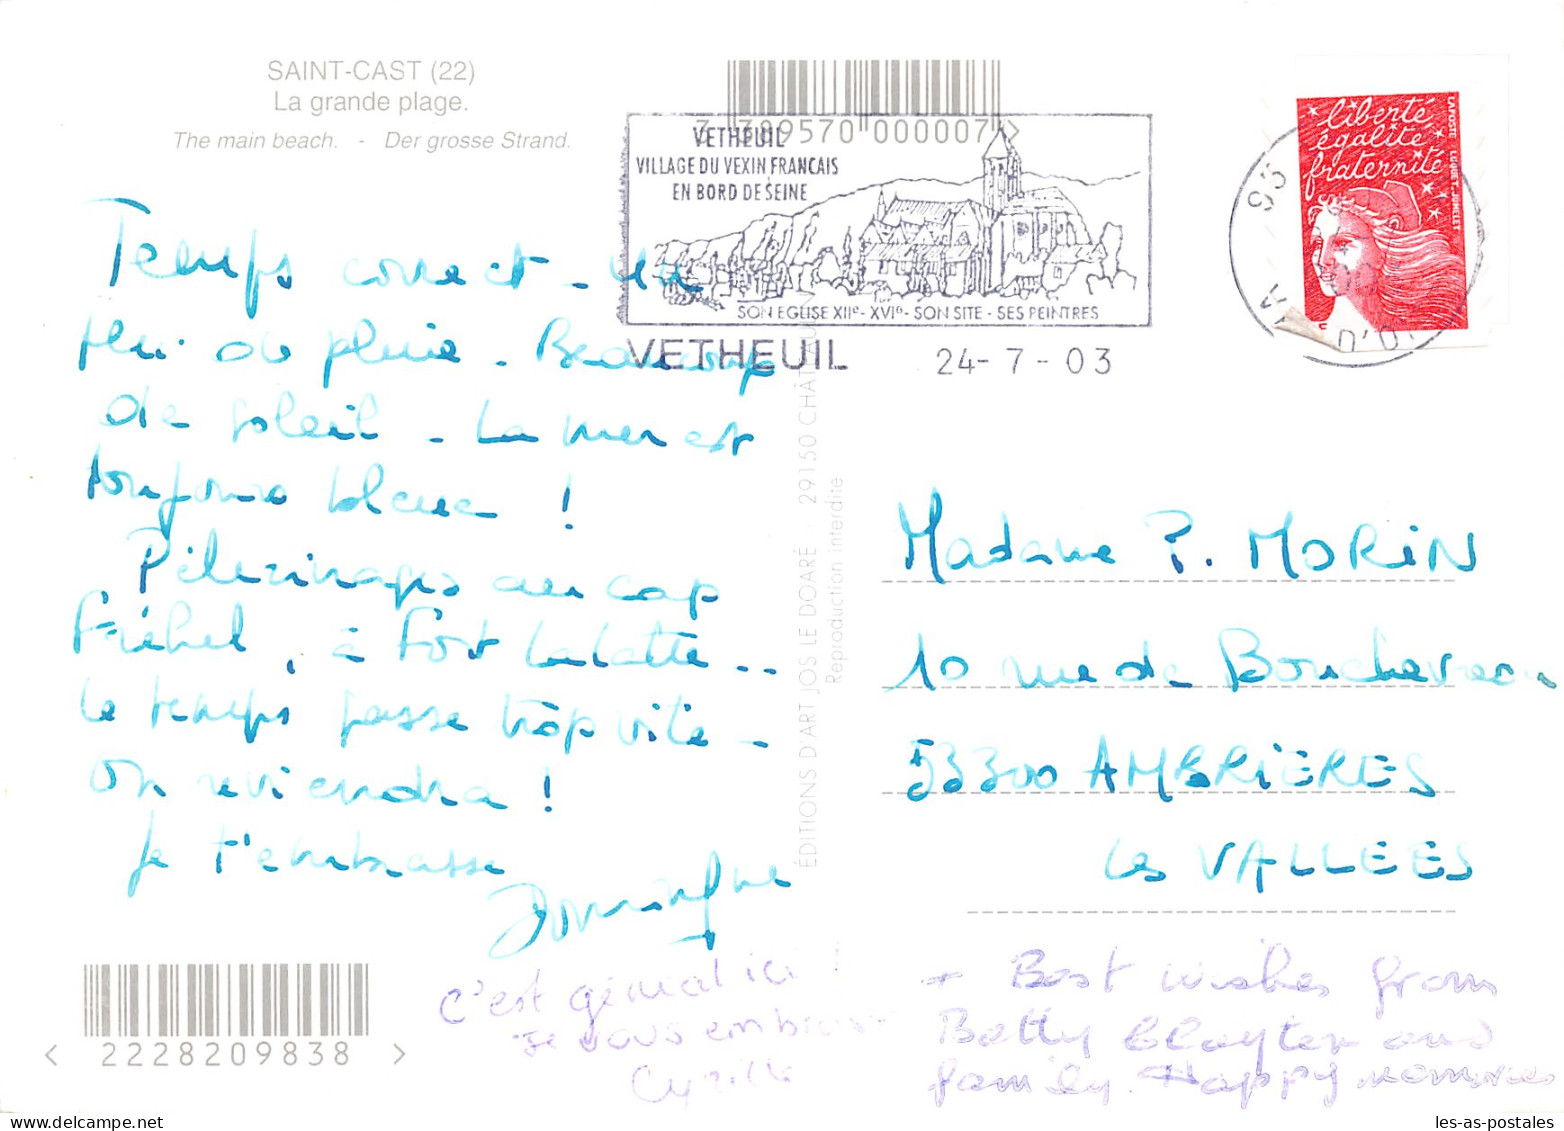 SAINT-CAST (22)
La grande plage.
The main beach. - Der grosse Strand.
3 309570 000007 >
VETHEUIL
VILLAGE DU VEXIN FRANCAIS
EN BORD DE SEINE
SON EGLISE XIIe - XVIe - SON SITE - SES PEINTRES
VETHEUIL 24-7-03
95
VAL D'OISE
liberté
égalité
fraternité
LA POSTE
Temps correct - un
peu de pluie - Beaucoup
de soleil - La mer est
toujours bleue !
Pélerinages au cap
Fréhel, à Fort Lalatte --
Le temps passe trop vite -
On reviendra !
Je t'embrasse
Dominique
C'est génial ici !
Je vous embrasse
Cyrille
ÉDITIONS D'ART JOS LE DOARÉ - 29150 CHÂTEAULIN
Reproduction interdite
Madame P. MORIN
10 rue de Bouchevreau
53300 AMBRIERES
les VALLEES
+ Best wishes from
Betty Clayton and
family. Happy memories
< 2228209838 >
les-as-postales